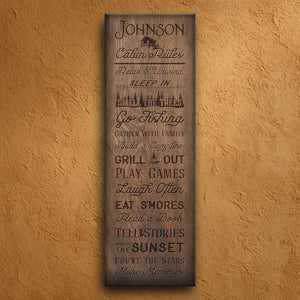 JOHNSON
Cabin Rules
Relax & Unwind
SLEEP IN
SMELL THE TREES
Go Fishing
GATHER WITH FAMILY
Build a Campfire
GRILL OUT
PLAY GAMES
Laugh Often
EAT S'MORES
Read a Book
TELL STORIES
SUNSET
COUNT THE STARS
Make Memories